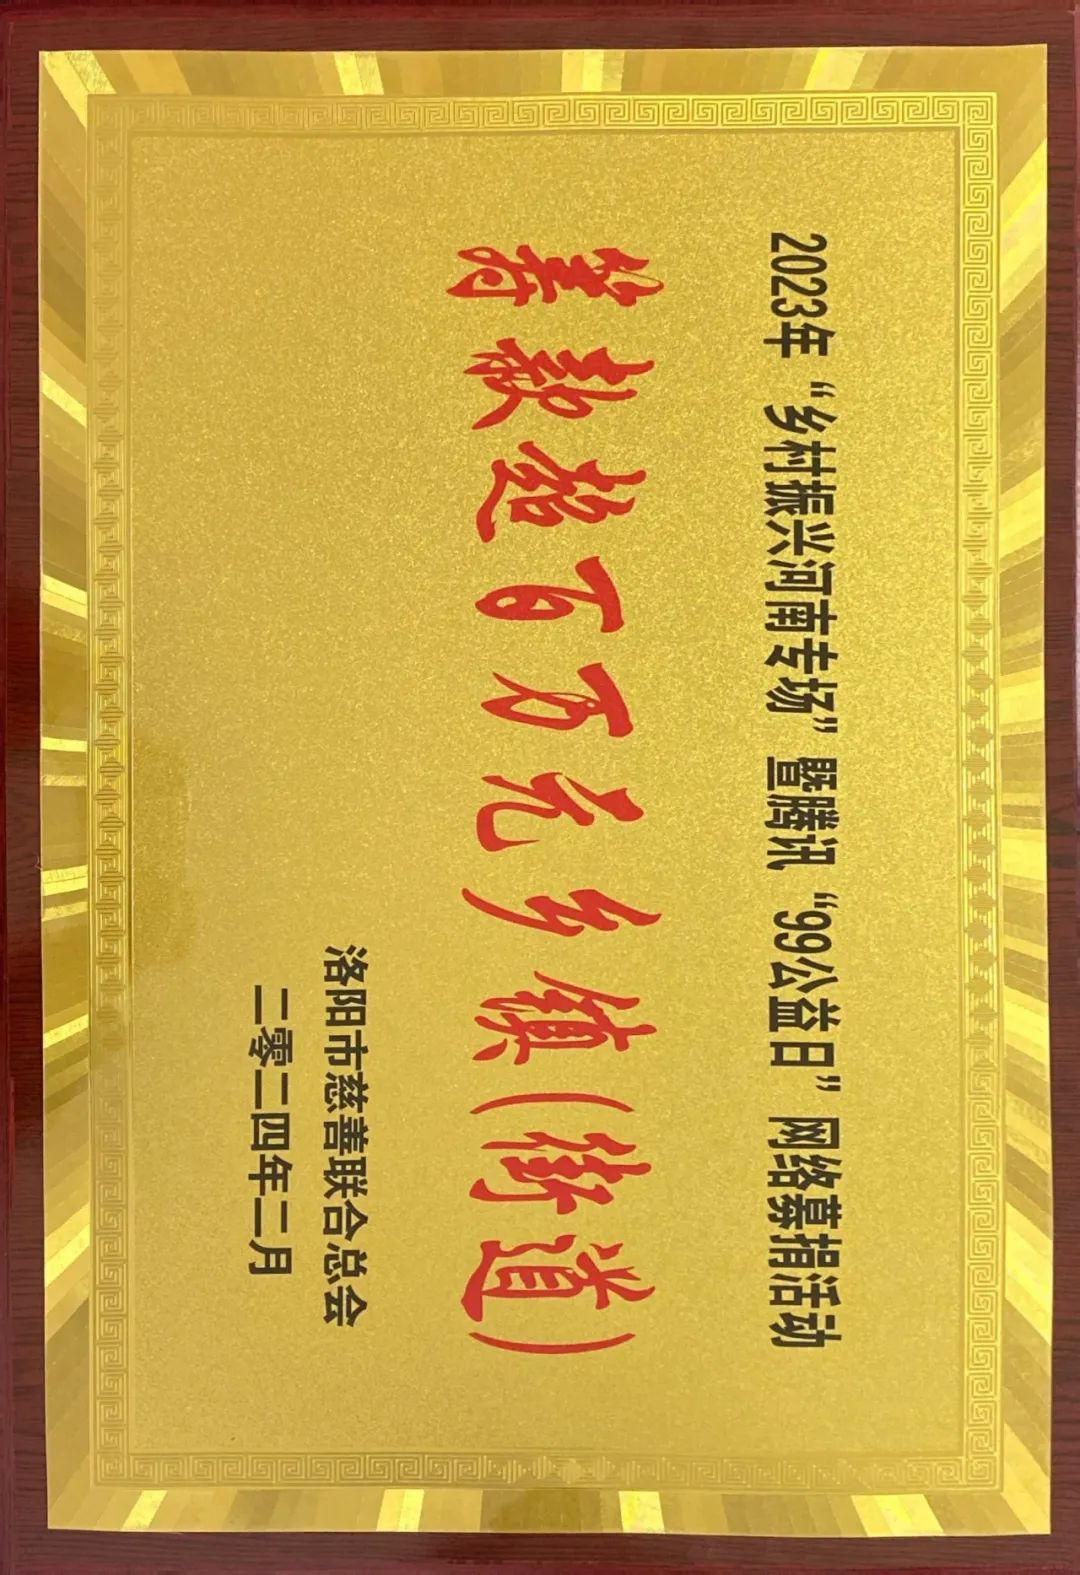 2023年“乡村振兴河南专场”暨腾讯“99公益日”网络募捐活动
筹款超百万元乡镇(街道)
洛阳市慈善联合总会
二零二四年二月